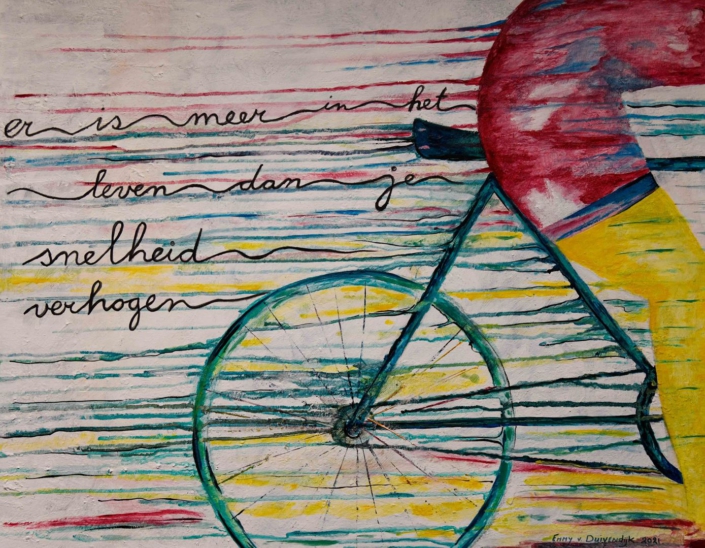 er is meer in het
leven dan je
snelheid
verhogen
Enny v. Duivendijk 2021